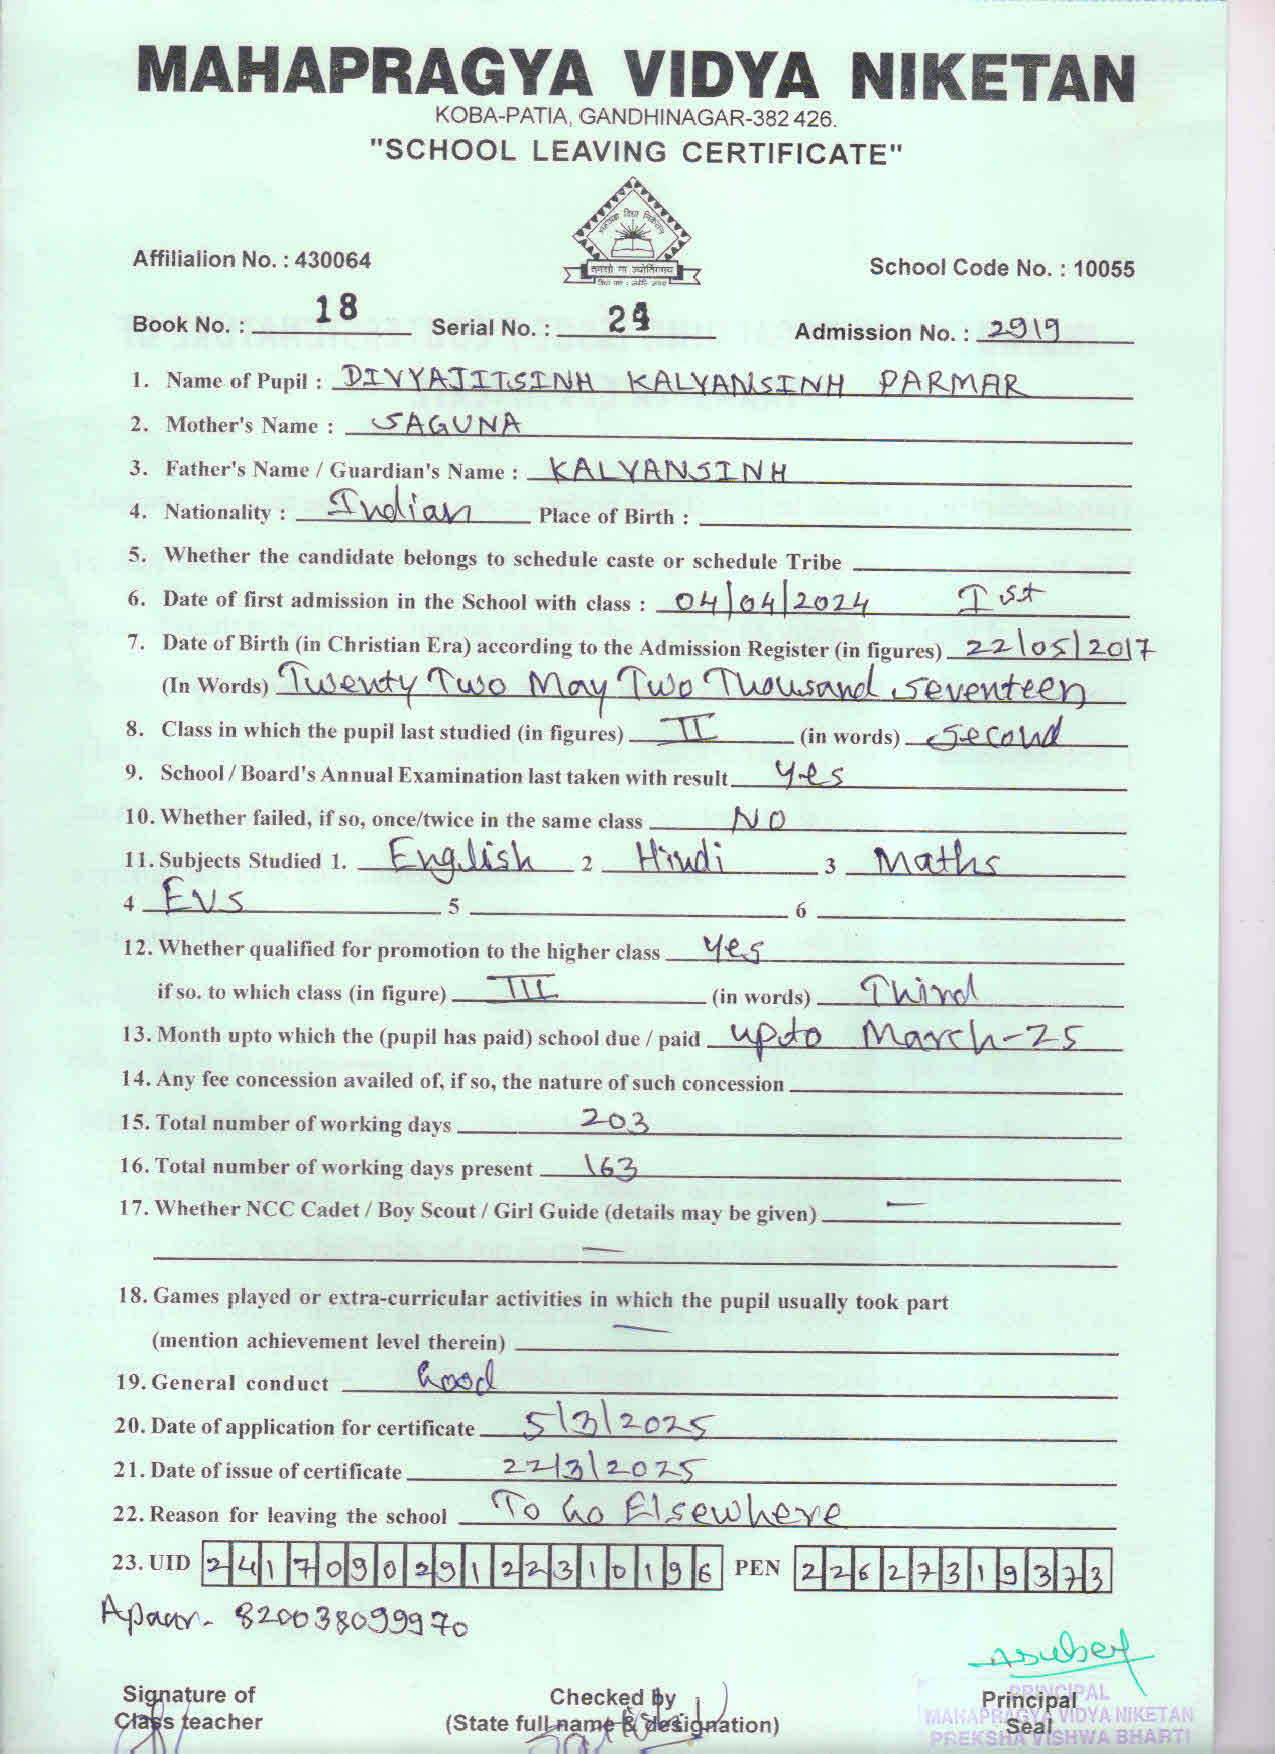 MAHAPRAGYA VIDYA NIKETAN
KOBA-PATIA, GANDHINAGAR-382 426.
"SCHOOL LEAVING CERTIFICATE"
तमसो मा ज्योतिर्गमय
Affilialion No. : 430064 School Code No. : 10055
Book No. : 18 Serial No. : 24 Admission No. : 2919
1. Name of Pupil : DIVYAJITSINH KALYANSINH PARMAR
2. Mother's Name : SAGUNA
3. Father's Name / Guardian's Name : KALYANSINH
4. Nationality : Indian Place of Birth :
5. Whether the candidate belongs to schedule caste or schedule Tribe
6. Date of first admission in the School with class : 04/04/2024 Ist
7. Date of Birth (in Christian Era) according to the Admission Register (in figures) 22/05/2017
(In Words) Twenty Two May Two Thousand Seventeen
8. Class in which the pupil last studied (in figures) II (in words) Second
9. School / Board's Annual Examination last taken with result yes
10. Whether failed, if so, once/twice in the same class NO
11. Subjects Studied 1. English 2 Hindi 3 Maths
4 EVS 5 6
12. Whether qualified for promotion to the higher class yes
if so. to which class (in figure) III (in words) Third
13. Month upto which the (pupil has paid) school due / paid upto March-25
14. Any fee concession availed of, if so, the nature of such concession
15. Total number of working days 203
16. Total number of working days present 163
17. Whether NCC Cadet / Boy Scout / Girl Guide (details may be given) —
—
18. Games played or extra-curricular activities in which the pupil usually took part
(mention achievement level therein) —
19. General conduct Good
20. Date of application for certificate 5/3/2025
21. Date of issue of certificate 22/3/2025
22. Reason for leaving the school To Go Elsewhere
23. UID 241709029122310196 PEN 22627319373
Apaar- 820038099970
Signature of Checked by Principal
Class teacher (State full name & designation) Seal
PRINCIPAL
MAHAPRAGYA VIDYA NIKETAN
PREKSHA VISHWA BHARTI